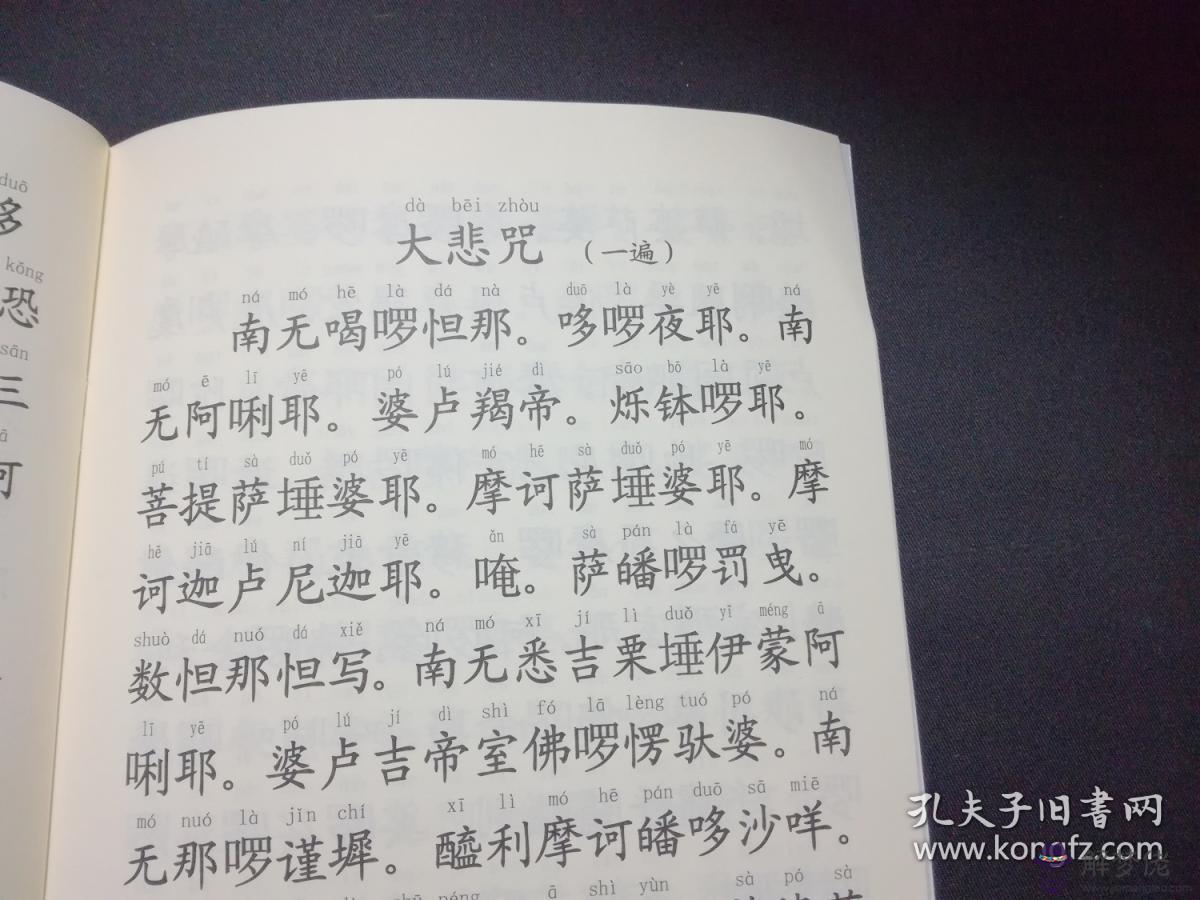 duō
哆
kǒng
恐
sān
三
dà bēi zhòu
大悲咒 （一遍）
ná mó hē là dá nà duō là yè yē ná
南无喝啰怛那。哆啰夜耶。南
mó ē lī yē pó lú jié dì sāo bō là yē
无阿唎耶。婆卢羯帝。烁钵啰耶。
pú tí sà duǒ pó yē mó hē sà duǒ pó yē mó
菩提萨埵婆耶。摩诃萨埵婆耶。摩
hē jiā lú ní jiā yē ǎn sà pán là fá yē
诃迦卢尼迦耶。唵。萨皤啰罚曳。
shuò dá nuó dá xiě ná mó xī jí lì duǒ yī méng ā
数怛那怛写。南无悉吉栗埵伊蒙阿
lī yē pó lú jí dì shì fó lā lèng tuó pó ná
唎耶。婆卢吉帝室佛啰愣驮婆。南
mó nuó là jǐn chí xī lì mó hē pán duō sā miē
无那啰谨墀。醯利摩诃皤哆沙咩。
péng ā shì yùn sà pó sà
孔夫子旧書网
www.kongfz.com
解梦佬